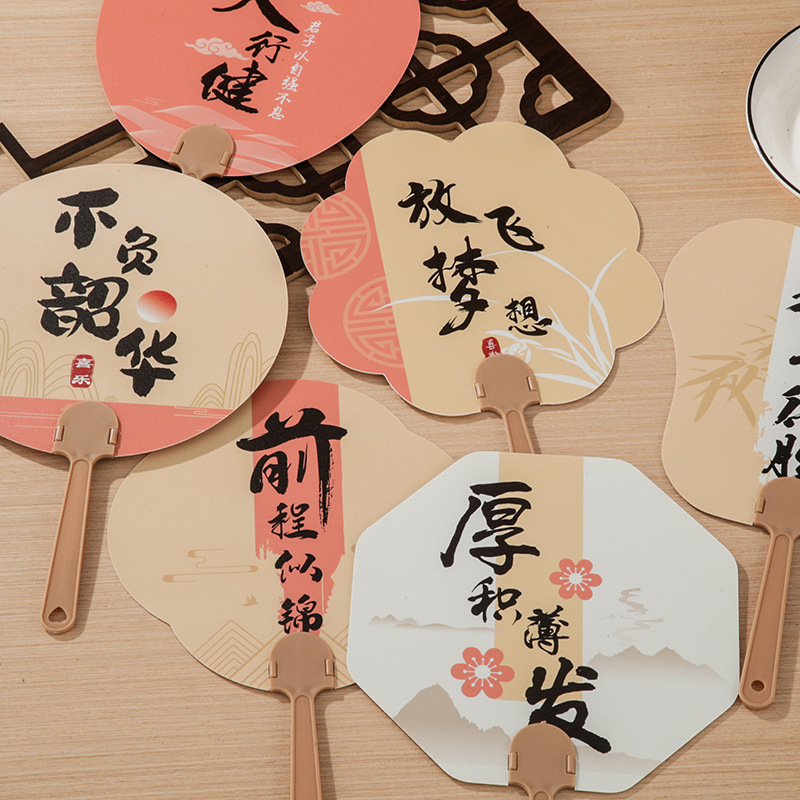 行
健
君子以自强不息
不负
韶华
喜乐
放飞
梦想
喜
前
程
似
锦
厚
积
薄
发